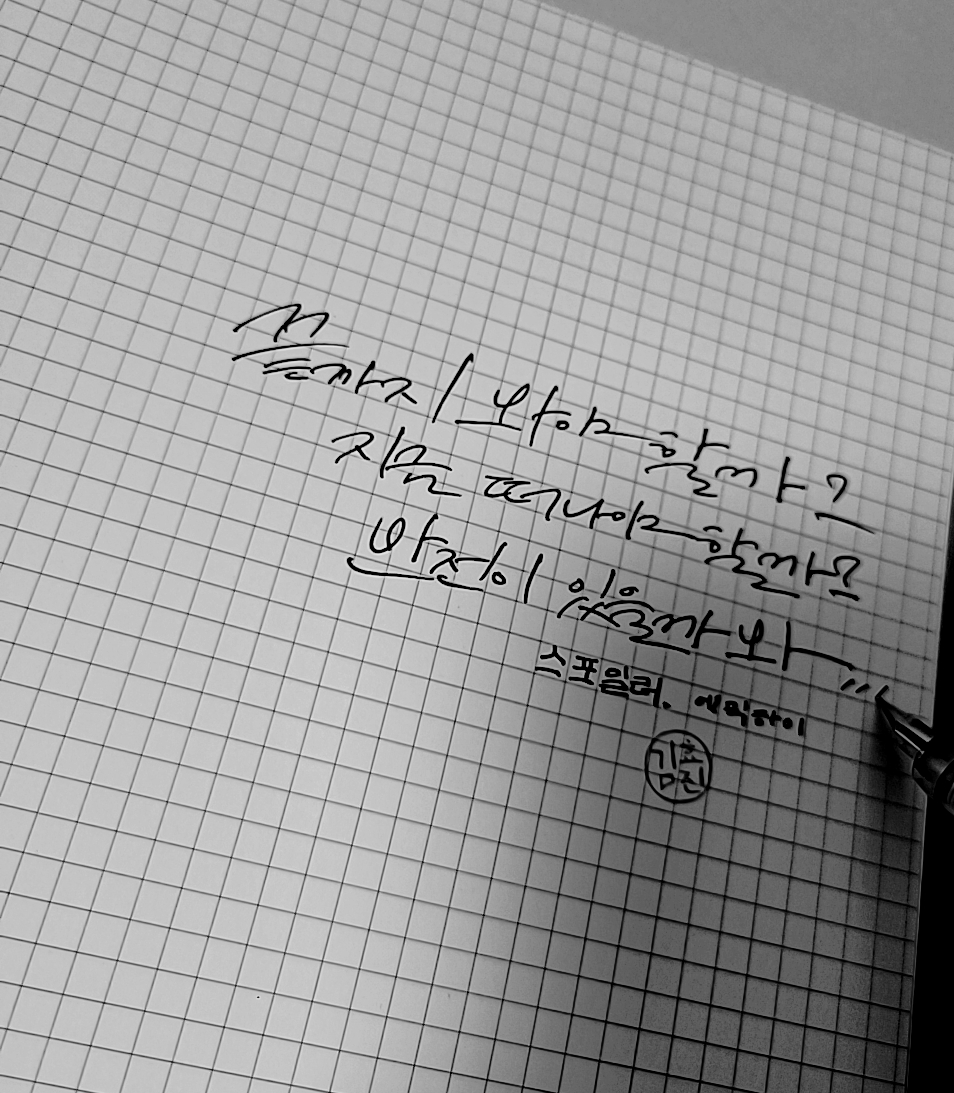 끝까지 봐야할까?
지금 떠나야할까?
반전이 있을까봐 ,,,
스포일러. 에픽하이
김호진